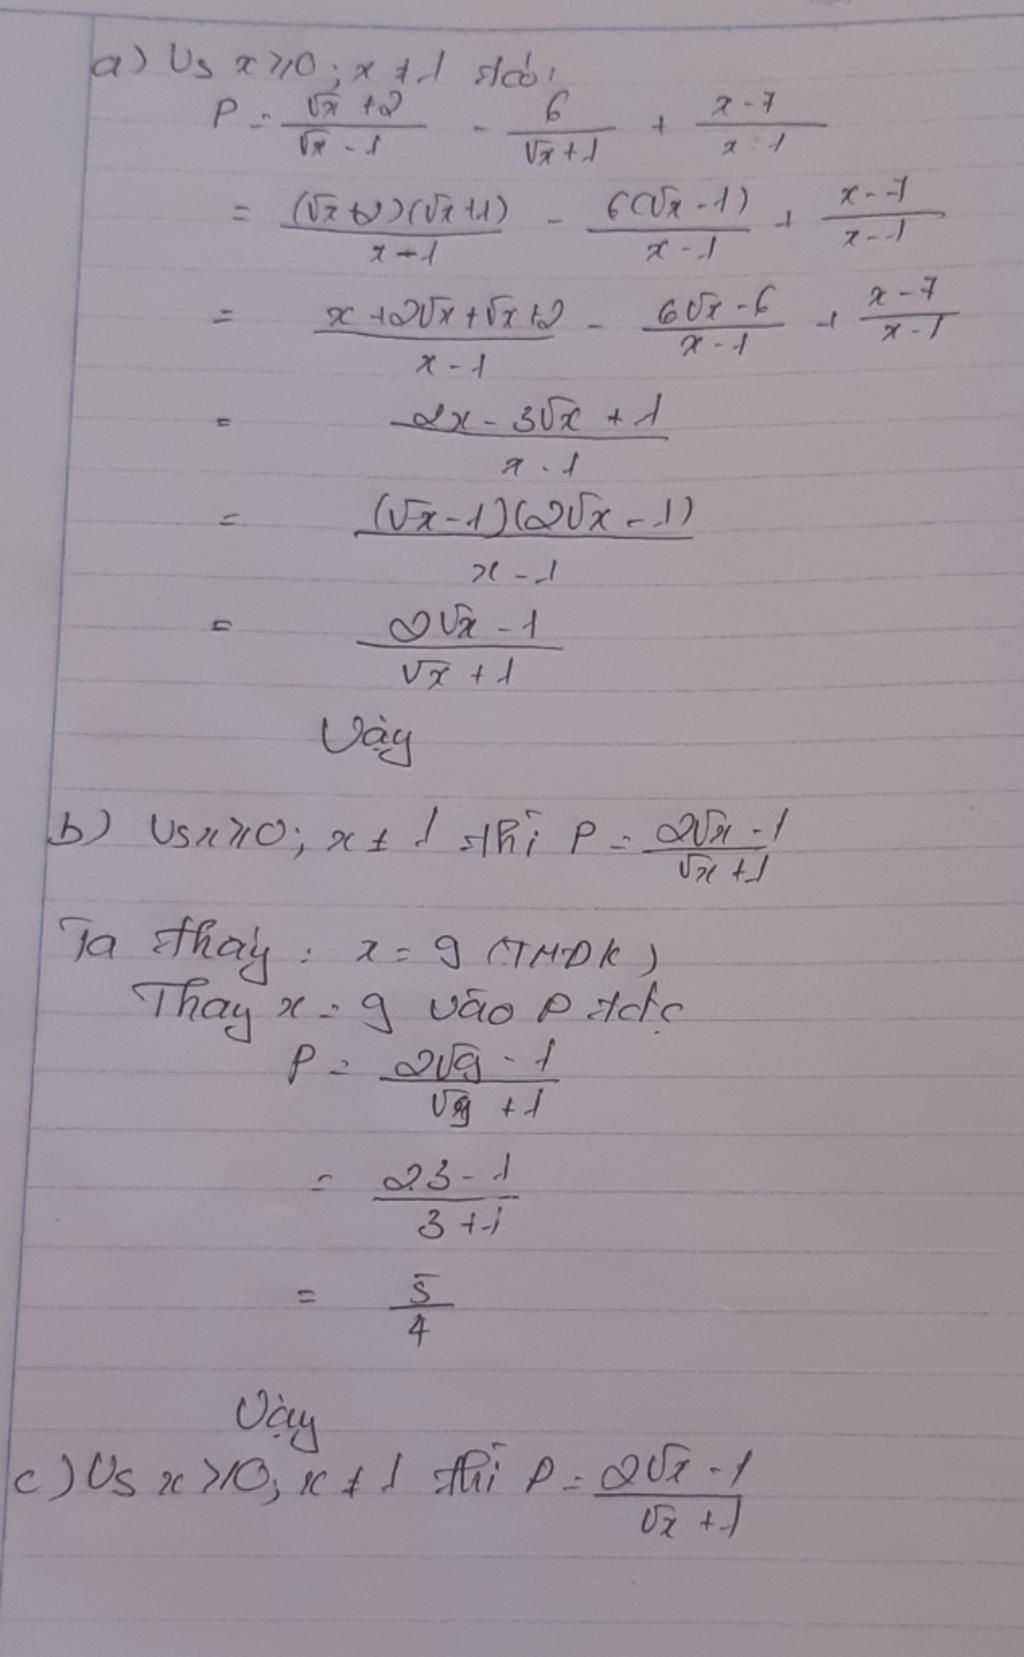 a) Vs x ⩾ 0; x ≠ 1 ta có:
P = (√x + 2)/(√x - 1) - 6/(√x + 1) + (x - 7)/(x - 1)
= (√x + 2)(√x + 1)/(x - 1) - 6(√x - 1)/(x - 1) + (x - 7)/(x - 1)
= (x + 2√x + √x + 2)/(x - 1) - (6√x - 6)/(x - 1) + (x - 7)/(x - 1)
= (2x - 3√x + 1)/(x - 1)
= (√x - 1)(2√x - 1)/(x - 1)
= (2√x - 1)/(√x + 1)
Vậy
b) Vs x ⩾ 0; x ≠ 1 thì P = (2√x - 1)/(√x + 1)
Ta thấy: x = 9 (TMĐK)
Thay x = 9 vào P tđc
P = (2√9 - 1)/(√9 + 1)
= (2.3 - 1)/(3 + 1)
= 5/4
Vậy
c) Vs x ⩾ 0; x ≠ 1 thì P = (2√x - 1)/(√x + 1)